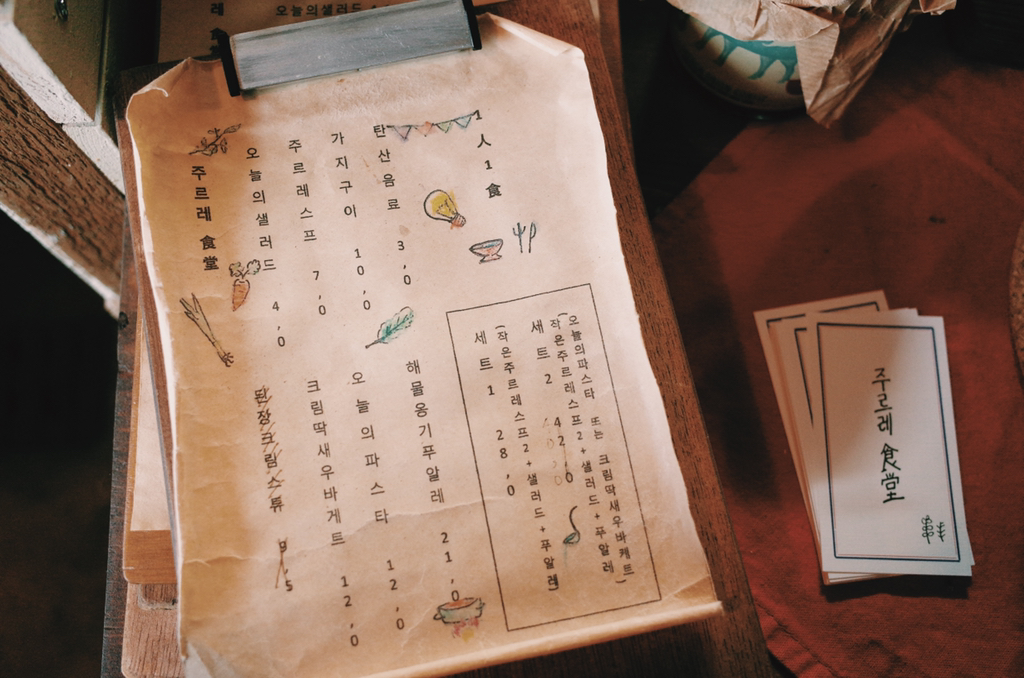 오늘의샐러드
레
주르레 食堂
오늘의샐러드 4,0
주르레스프 7,0
가지구이 10,0
탄산음료 3,0
1人 1食
된장크림스튜 9,5
크림딱새우바게트 12,0
오늘의파스타 12,0
해물옹기푸알레 21,0
세트 1 28,0
(작은주르레스프2+샐러드+푸알레)
세트 2 42,0
(작은주르레스프2+샐러드+푸알레
오늘의파스타 또는 크림딱새우바케트)
주르레 食堂